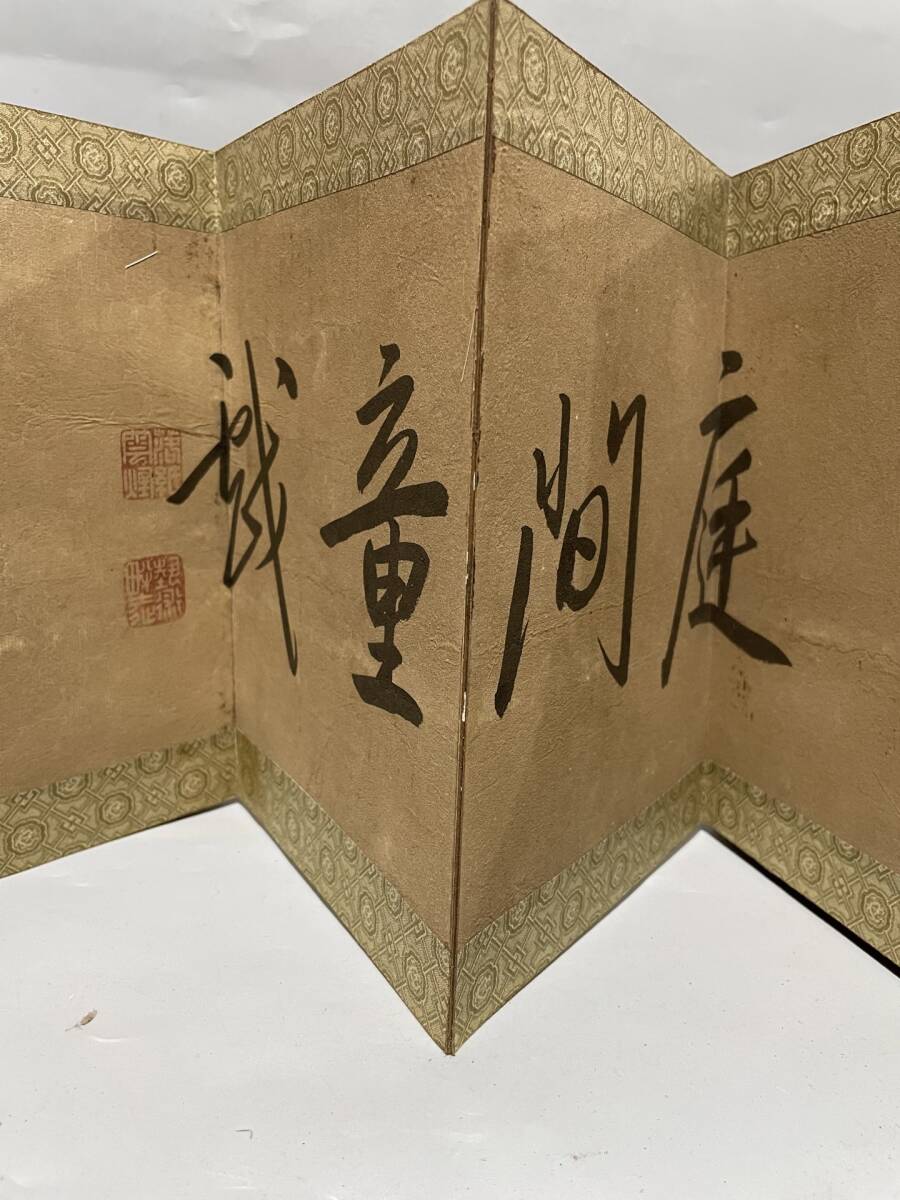 庭間童戯